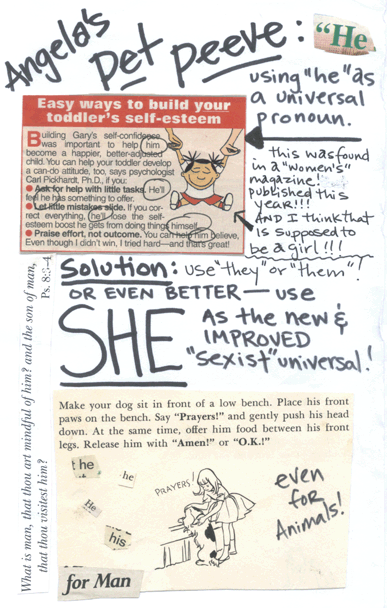 Angela's
pet peeve:
"He
using "he" as
a universal
pronoun.
Easy ways to build your
toddler's self-esteem
Building Gary's self-confidence
was important to help him
become a happier, better-adjusted
child. You can help your toddler develop
a can-do attitude, too, says psychologist
Carl Pickhardt, Ph.D., if you:
● Ask for help with little tasks. He'll
feel he has something to offer.
● Let little mistakes slide. If you cor-
rect everything, he'll lose the self-
esteem boost he gets from doing things himself.
● Praise effort, not outcome. You can help him believe,
Even though I didn't win, I tried hard—and that's great!
this was found
in a "women's"
magazine!
published this
year!!!
AND I think that
is supposed to
be a girl!!!
Solution: use "they" or "them"!
OR EVEN BETTER — use
SHE
As the new &
IMPROVED
"sexist" universal!
What is man, that thou art mindful of him? and the son of man,
that thou visitest him?
Ps. 8:3-4
Make your dog sit in front of a low bench. Place his front
paws on the bench. Say "Prayers!" and gently push his head
down. At the same time, offer him food between his front
legs. Release him with "Amen!" or "O.K.!"
t he
he
He
his
PRAYERS!
even
for
Animals!
for Man